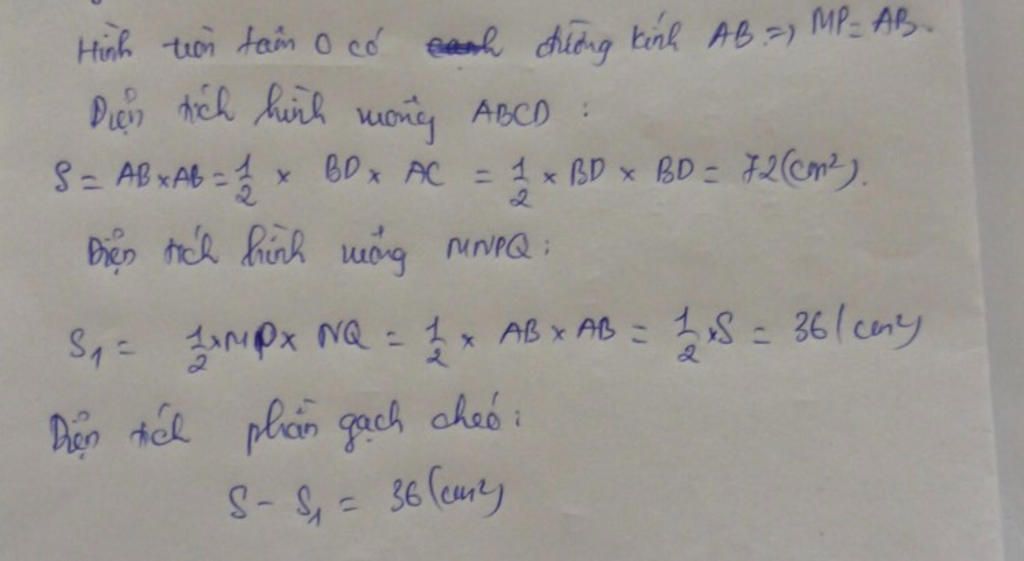 Hình tròn tâm O có đường kính AB => MP = AB.
Diện tích hình vuông ABCD :
S = AB x AB = 1/2 x BD x AC = 1/2 x BD x BD = 72 (cm²).
Diện tích hình vuông MNPQ :
S₁ = 1/2 x MP x NQ = 1/2 x AB x AB = 1/2 x S = 36 (cm²)
Diện tích phần gạch chéo :
S - S₁ = 36 (cm²)